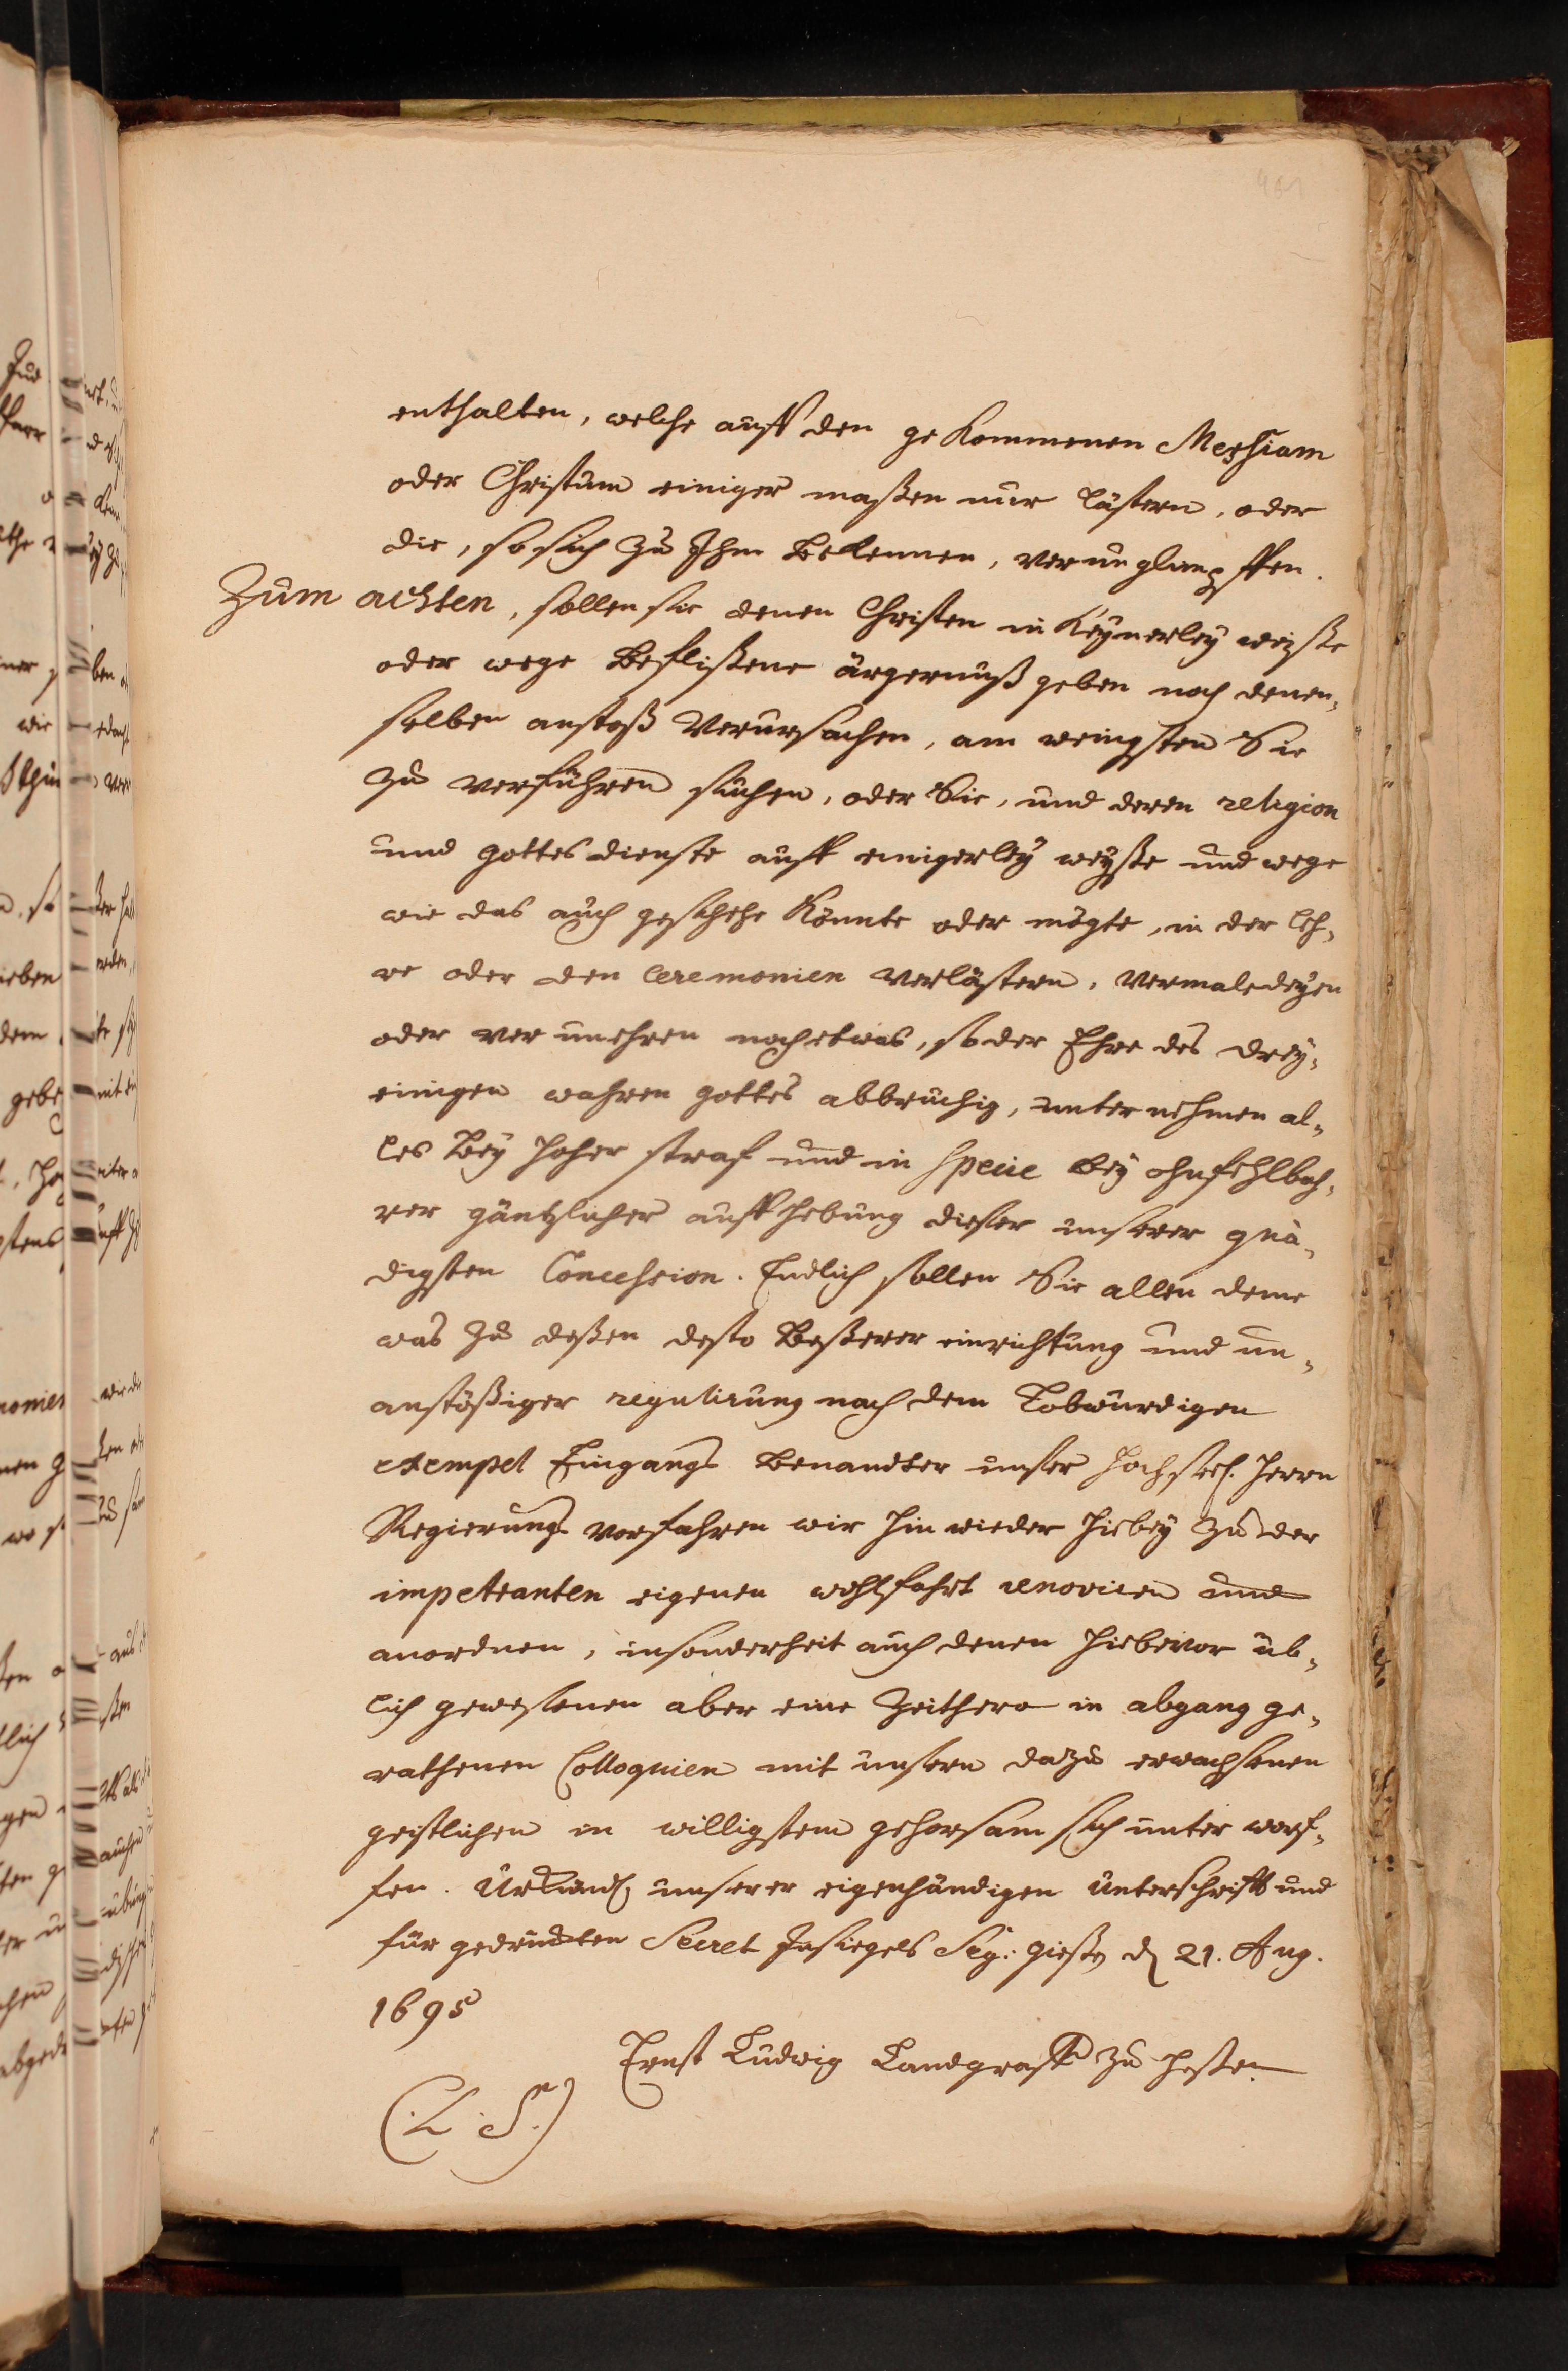 401
enthalten, welche auff den gekommenen Messiam
oder Christum einiger maßen nur lästern, oder
die, so sich zu Ihm bekennen, verunglimpffen.
Zum achten, sollen sie denen Christen in keynerley weyße
oder wege beflißene ärgernuß geben noch denen,
selben anstoß verursachen, am weingsten Sie
zu verführen suchen, oder Sie, und deren religion
und gottesdienste auff einigerley weyße und wege
wie das auch geschehe könnte oder mögte, in der leh,
re oder den Ceremonien verlästern, vermaledeyen
oder verunehren noch etwas, so der Ehre des drey,
einigen wahren gottes abbrüchig, unternehmen al,
les bey hoher straf und in specie bey ohnfehlbah,
rer gäntzlicher auffhebung dieser unserer gnä,
digsten Concession. Endlich sollen Sie allen deme
was zu deßen desto beßerer einrichtung und un,
anstößiger regulirung nach dem Lobwürdigen
exempel Eingangs benandter unser hochseel. Herrn
Regierungs vorfahren wir hinwieder hiebey zu der
impetranten eigenen wohlfahrt renoviren und
anordnen, insonderheit auch denen hiebevor üb,
lich gewesenen aber eine Zeithero in abgang ge,
rathenen Colloquien mit unsern dazu erwachsenen
geistlichen in willigstem gehorsam sich unterworf,
fen. Urkundl. unserer eigenhändigen Unterschrifft und
für gedruckten Secret Insiegels Sig: Gießen d 21. Aug.
1695
Ernst Ludwig Landgraff zu Heßen
(L. S.)